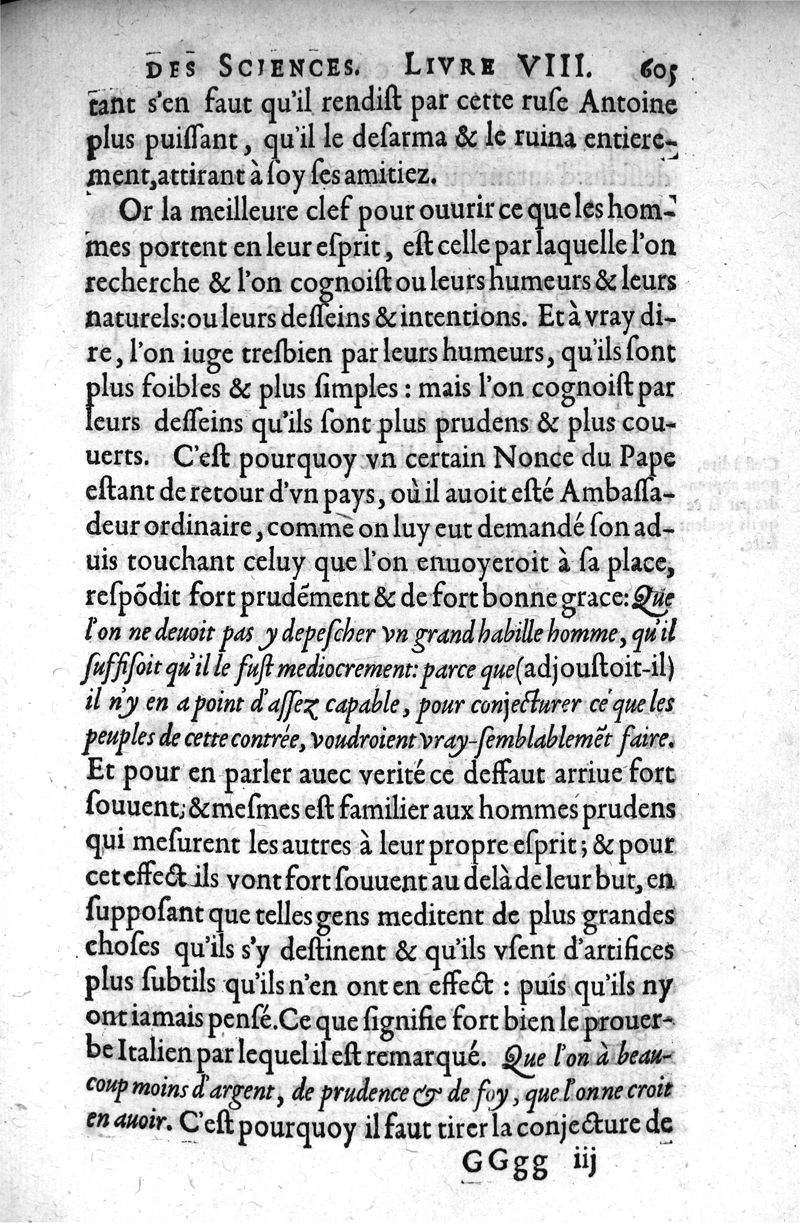 DES SCIENCES. LIVRE VIII. 605
tant s'en faut qu'il rendiſt par cette ruſe Antoine
plus puiſſant, qu'il le deſarma & le ruina entiere-
ment, attirant à ſoy ſes amitiez.
Or la meilleure clef pour ouurir ce que les hom-
mes portent en leur eſprit, eſt celle par laquelle l'on
recherche & l'on cognoiſt ou leurs humeurs & leurs
naturels: ou leurs deſſeins & intentions. Et à vray di-
re, l'on iuge tresbien par leurs humeurs, qu'ils ſont
plus foibles & plus ſimples : mais l'on cognoiſt par
leurs deſſeins qu'ils ſont plus prudens & plus cou-
uerts. C'eſt pourquoy vn certain Nonce du Pape
eſtant de retour d'vn pays, où il auoit eſté Ambaſſa-
deur ordinaire, comme on luy eut demandé ſon ad-
uis touchant celuy que l'on enuoyeroit à ſa place,
reſpõdit fort prudẽment & de fort bonne grace: Que
l'on ne deuoit pas y depeſcher vn grand habille homme, qu'il
ſuffiſoit qu'il le fuſt mediocrement: parce que (adjouſtoit-il)
il n'y en a point d'aſſez capable, pour conjecturer ce que les
peuples de cette contrée, voudroient vray-ſemblablemẽt faire.
Et pour en parler auec verité ce deffaut arriue fort
ſouuent, & meſmes eſt familier aux hommes prudens
qui meſurent les autres à leur propre eſprit; & pour
cet effect ils vont fort ſouuent au delà de leur but, en
ſuppoſant que telles gens meditent de plus grandes
choſes qu'ils s'y deſtinent & qu'ils vſent d'artifices
plus ſubtils qu'ils n'en ont en effect : puis qu'ils ny
ont iamais penſé. Ce que ſignifie fort bien le prouer-
be Italien par lequel il eſt remarqué. Que l'on à beau-
coup moins d'argent, de prudence & de foy, que l'on ne croit
en auoir. C'eſt pourquoy il faut tirer la conjecture de
GGgg iij